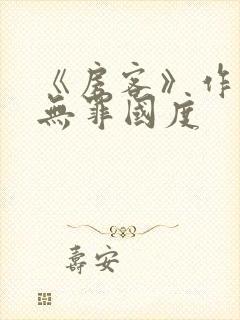 《房客》作
無罪國度
壽安